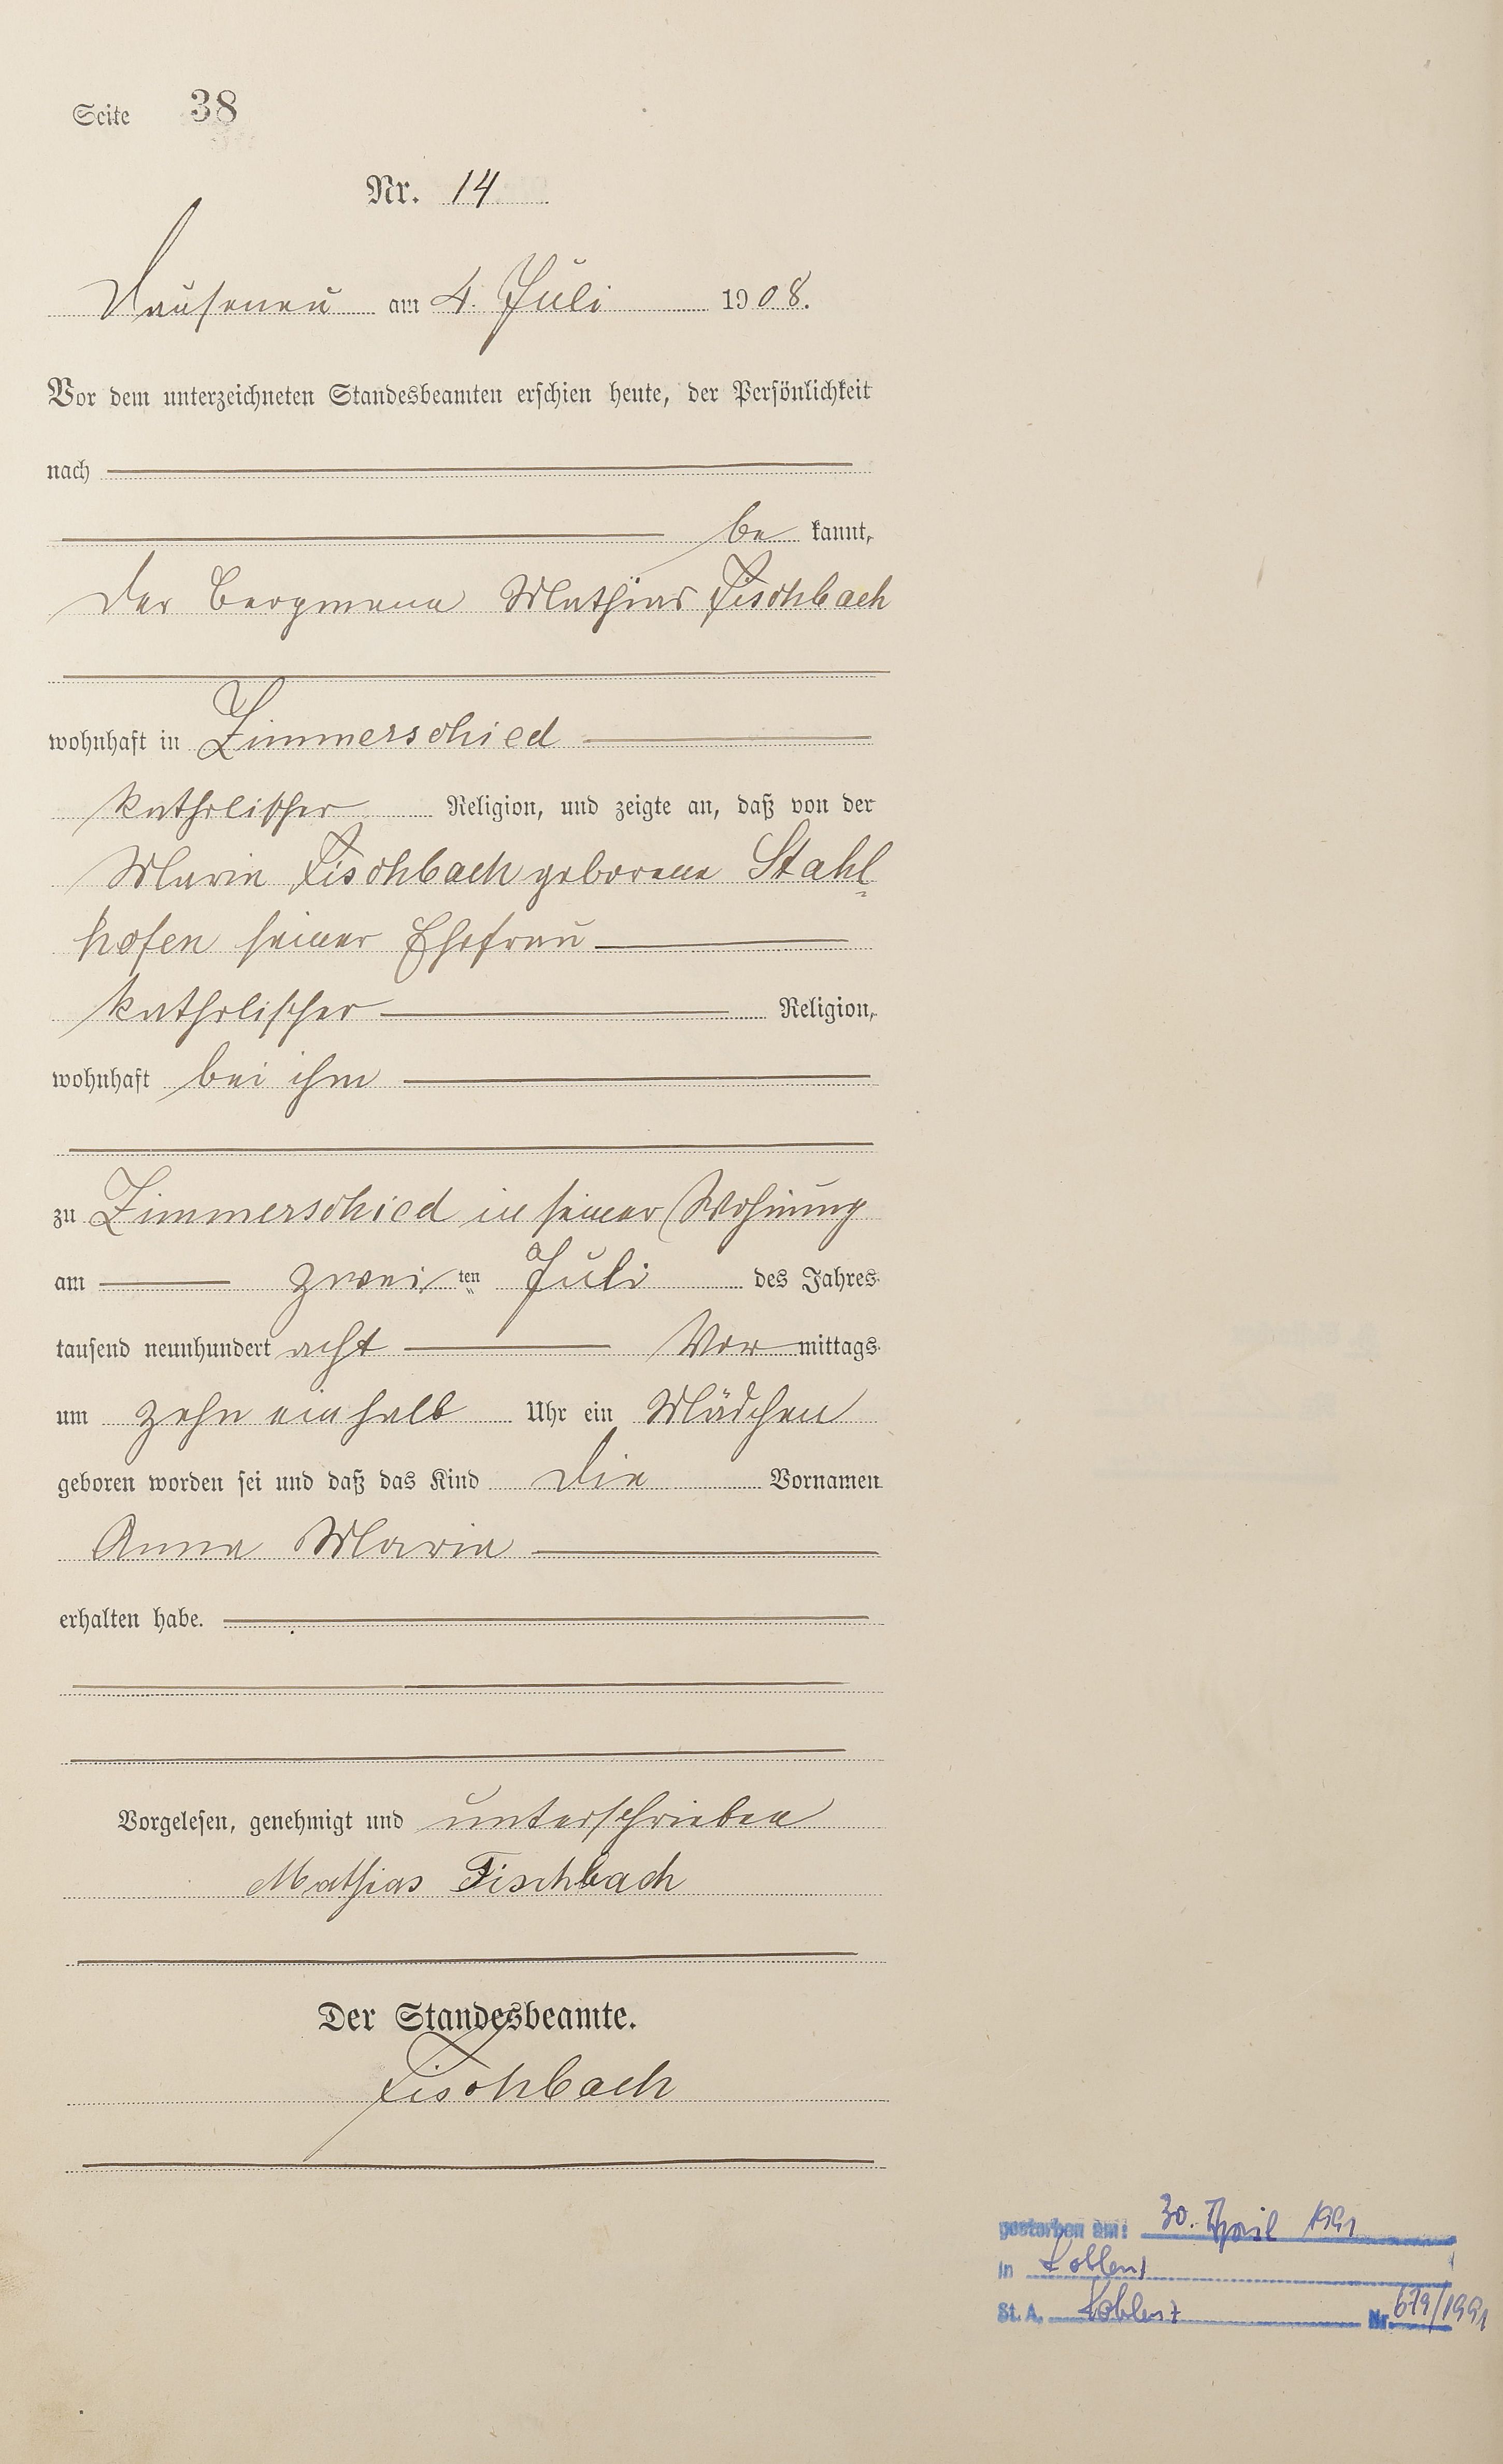 Seite 38
Nr. 14
Dausenau am 4. Juli 1908.
Vor dem unterzeichneten Standesbeamten erschien heute, der Persönlichkeit
nach
be kannt,
der Bergmann Mathias Fischbach
wohnhaft in Zimmerschied
katholischer Religion, und zeigte an, daß von der
Maria Fischbach geborene Stahl-
hofen seiner Ehefrau
katholischer Religion,
wohnhaft bei ihm
zu Zimmerschied in seiner Wohnung
am zwei ten Juli des Jahres
tausend neunhundert acht Vor mittags
um zehn einhalb Uhr ein Mädchen
geboren worden sei und daß das Kind die Vornamen
Anna Maria
erhalten habe.
Vorgelesen, genehmigt und unterschrieben
Mathias Fischbach
Der Standesbeamte.
Fischbach
gestorben am: 30. April 1991
in Koblenz
St. A. Koblenz Nr. 679/1991